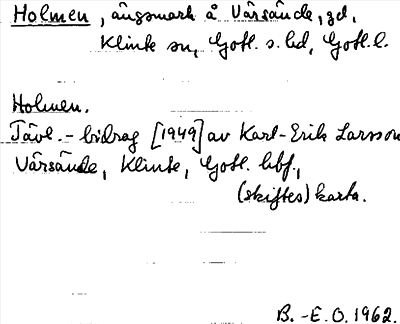 Holmen, ängsmark å Vårsände, gd,
Klinte sn, Gotl. s. hd, Gotl. l.
Holmen.
Tävl.-bidrag [1949] av Karl-Erik Larsson
Vårsände, Klinte, Gotl. hbf.,
(skiftes) karta.
B.-E.O. 1962.